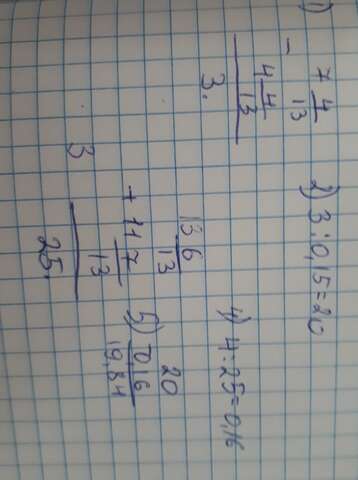 1)
- 7 4/13
4 4/13
3.
2) 3:0,15=20
3
13 6/13
+ 11 7/13
25.
4) 4:25=0,16
5) 20
0,16
19,84